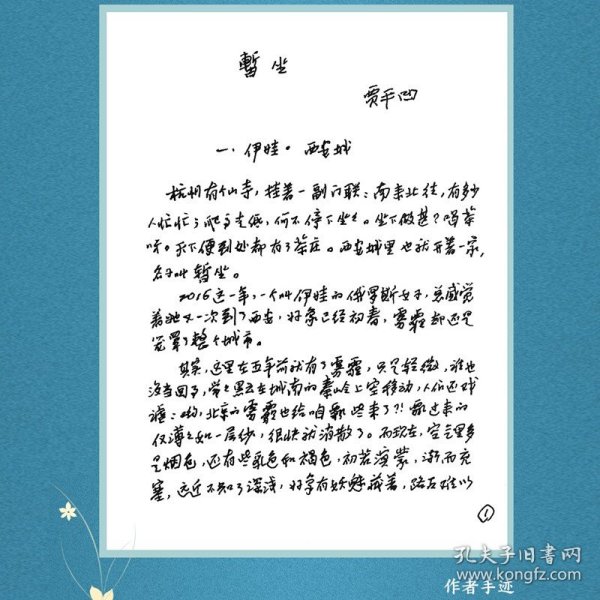 暂坐
贾平凹
一、伊娃。西安城
杭州有个山寺，挂着一副门联：南来北往，有多少
人忙忙；爬高走低，何不停下坐坐。坐下做甚？喝茶
呀。天下便到处都有了茶庄。西安城里也就开着一家，
名叫暂坐。
2016这一年，一个叫伊娃的俄罗斯女子，总感觉
着她又一次到了西安，好象已经初春，雾霾却还是
笼罩了整个城市。
其实，这里在五年前就有了雾霾，只是轻微，谁也
没当回事，常常黑云在城南的秦岭上空移动，人们还戏
谑：哟，北京的雾霾也给咱飘些来了？！飘过来的
仅薄薄如一层纱，很快就消散了。而现在，空气里多
是烟色，还有些乳色和褐色，初若溟蒙，渐而充
塞，远近不知了深浅，好象有妖魅藏着，路友难以
①
孔夫子旧书网
www.kongfz.com
作者手迹